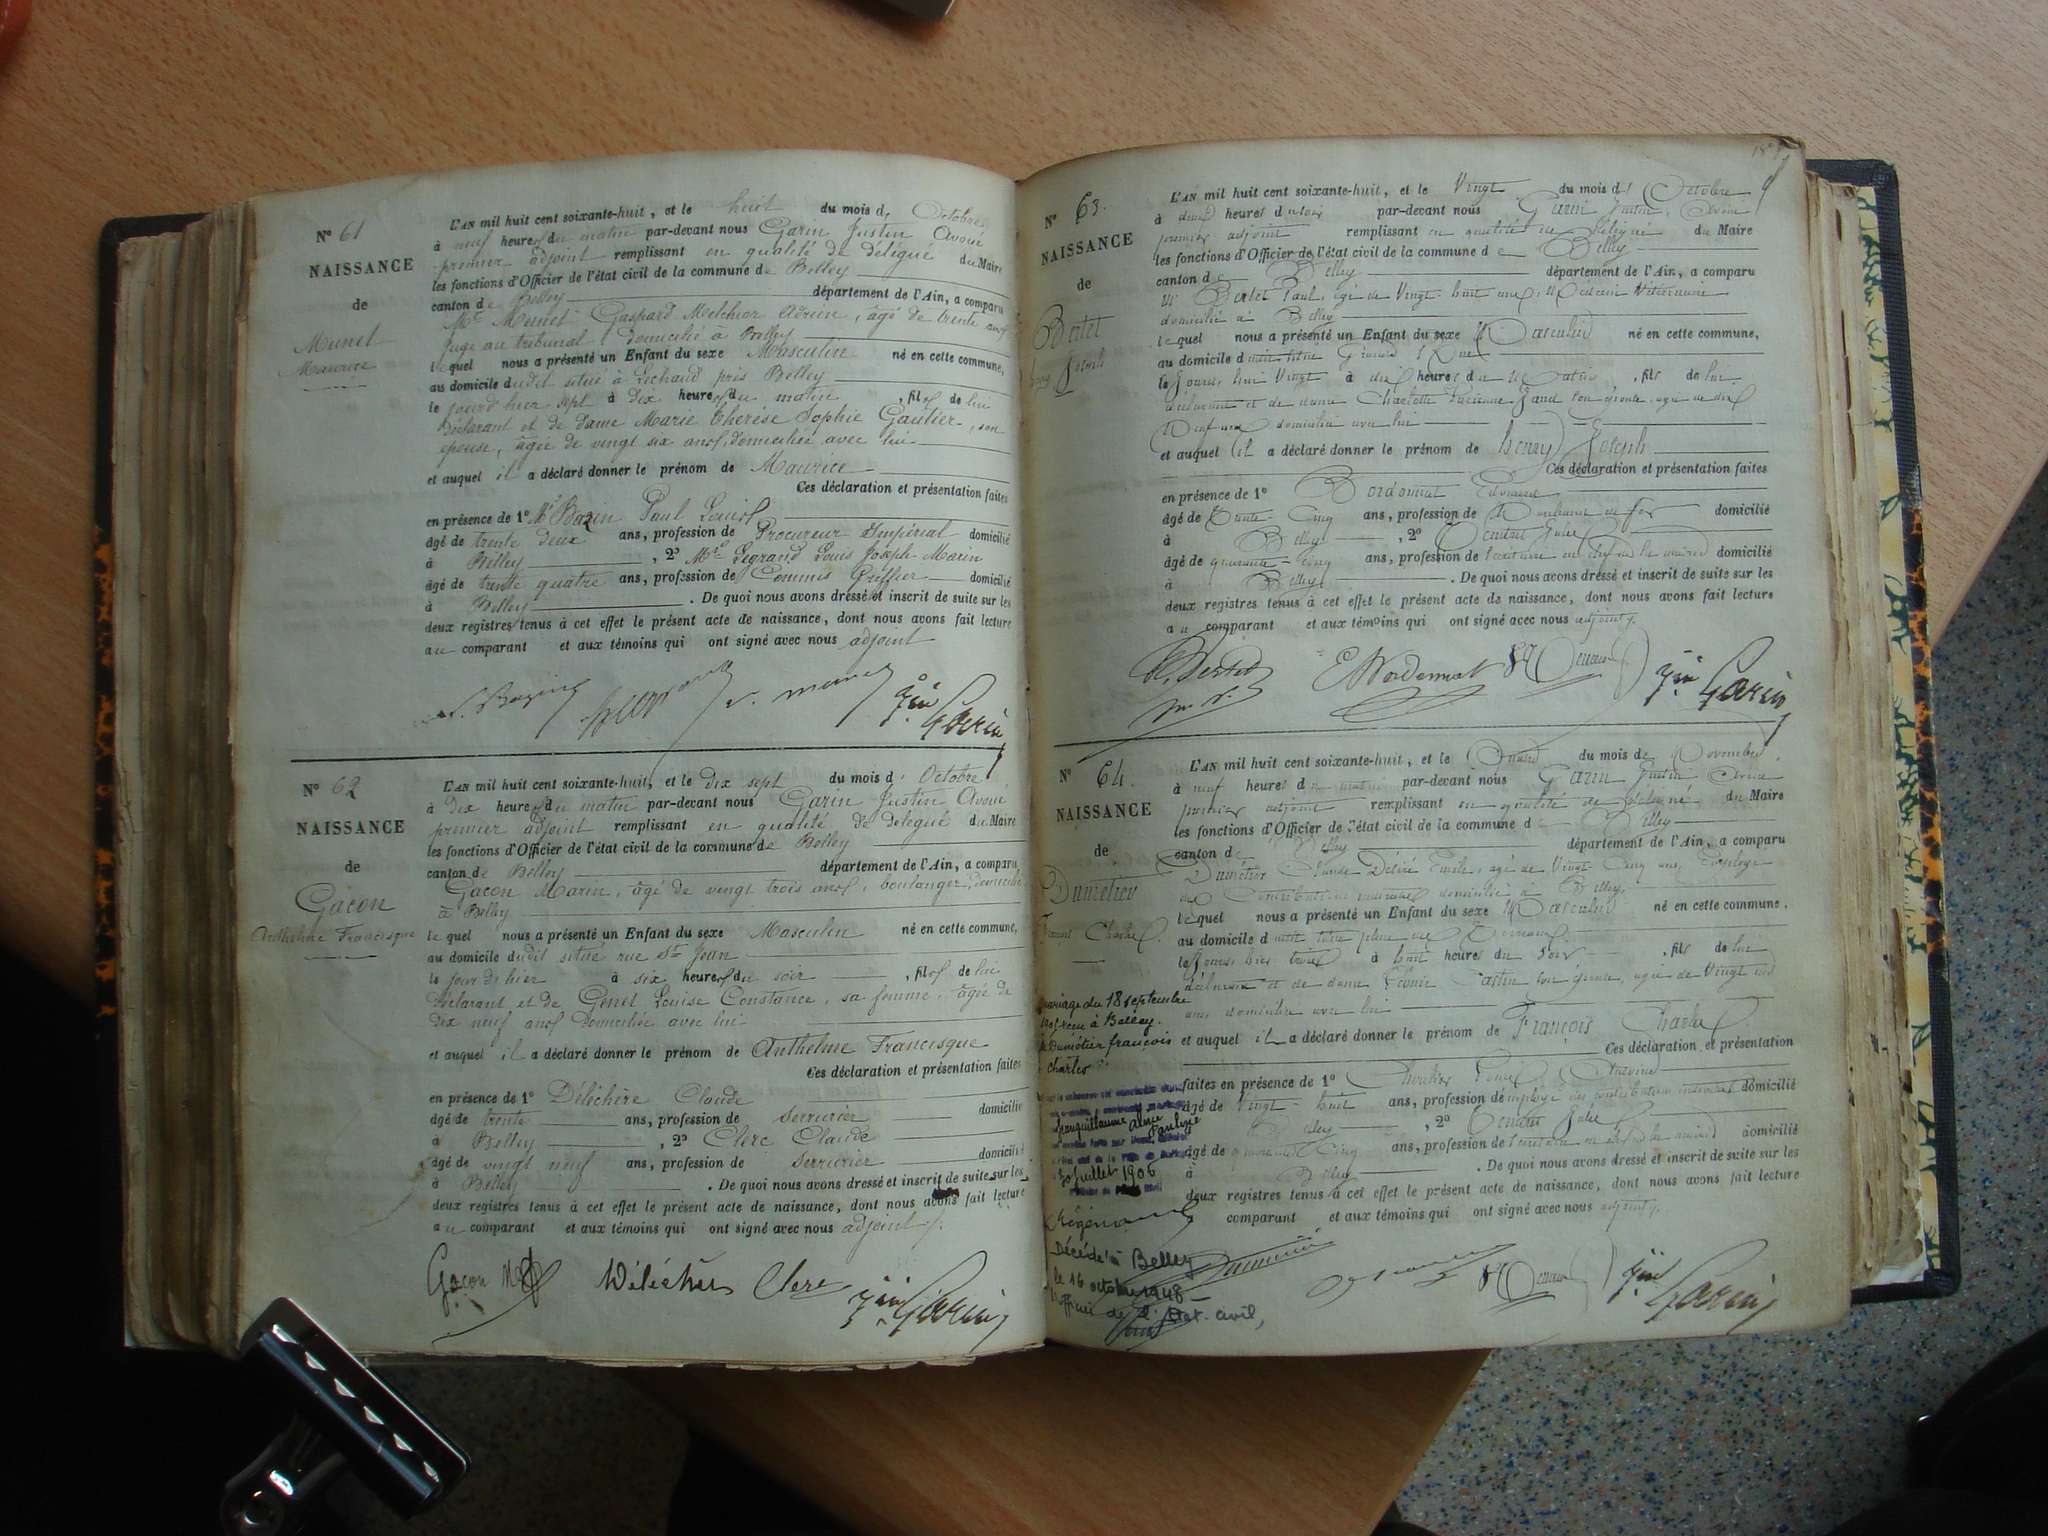 N° 61
NAISSANCE
de
Munet
Maurice
L'AN mil huit cent soixante-huit, et le huit du mois d' Octobre
à neuf heures du matin par-devant nous Garin Justin Avoué
premier adjoint remplissant en qualité de délégué du Maire
les fonctions d'Officier de l'état civil de la commune de Belley
canton de Belley département de l'Ain, a comparu
Mr Munet Gaspard Melchior Adrien, âgé de trente ans
Juge au tribunal domicilié à Belley
lequel nous a présenté un Enfant du sexe Masculin né en cette commune,
au domicile dudit situé à Léchaud près Belley
le jourd'hier sept à dix heures du matin, fils de lui
Déclarant et de Dame Marie Thérèse Sophie Gautier, son
épouse, âgée de vingt six ans, domiciliée avec lui
et auquel il a déclaré donner le prénom de Maurice
Ces déclaration et présentation faites
en présence de 1° Mr Bazin Paul Louis
âgé de trente deux ans, profession de Procureur Impérial domicilié
à Belley, 2° Mr Legrand Louis Joseph Marin
âgé de trente quatre ans, profession de Commis Greffier domicilié
à Belley. De quoi nous avons dressé et inscrit de suite sur les
deux registres tenus à cet effet le présent acte de naissance, dont nous avons fait lecture
au comparant et aux témoins qui ont signé avec nous adjoint
Bazin Garin
N° 62
NAISSANCE
de
Gacon
Anthelme Francisque
L'AN mil huit cent soixante-huit, et le dix sept du mois d' Octobre
à dix heures du matin par-devant nous Garin Justin Avoué
premier adjoint remplissant en qualité de délégué du Maire
les fonctions d'Officier de l'état civil de la commune de Belley
canton de Belley département de l'Ain, a comparu
Gacon Marin, âgé de vingt trois ans, boulanger, domicilié
à Belley
lequel nous a présenté un Enfant du sexe Masculin né en cette commune,
au domicile dudit située rue St Jean
le jour d'hier à six heures du soir, fils de lui
Déclarant et de Genet Louise Constance, sa femme, âgée de
dix neuf ans domiciliée avec lui
et auquel il a déclaré donner le prénom de Anthelme Francisque
Ces déclaration et présentation faites
en présence de 1° Déléchère Claude
âgé de trente ans, profession de serrurier domicilié
à Belley, 2° Clerc Claude
âgé de vingt neuf ans, profession de serrurier domicilié
à Belley. De quoi nous avons dressé et inscrit de suite sur les
deux registres tenus à cet effet le présent acte de naissance, dont nous avons fait lecture
au comparant et aux témoins qui ont signé avec nous adjoint
Gacon Clerc Garin
N° 63.
NAISSANCE
de
Bertet
Joseph
L'AN mil huit cent soixante-huit, et le Vingt du mois d' Octobre
à deux heures du soir par-devant nous Garin Justin, Avoué
premier adjoint remplissant en qualité de délégué du Maire
les fonctions d'Officier de l'état civil de la commune de Belley
canton de Belley département de l'Ain, a comparu
Mr Bertet Paul, âgé de Vingt huit ans, Médecin Vétérinaire
domicilié à Belley
lequel nous a présenté un Enfant du sexe Masculin né en cette commune,
au domicile Grande Rue
le jourd'hui Vingt à dix heures du Matin, fils de lui
déclarant et de dame Charlotte son épouse, âgée de dix
Neuf ans domiciliée avec lui
et auquel il a déclaré donner le prénom de henry Joseph
Ces déclaration et présentation faites
en présence de 1° Bordonnat Edouard
âgé de Trente-Cinq ans, profession de Marchand de fer domicilié
à Belley, 2°
âgé de quarante-cinq ans, profession de Secrétaire en chef de la mairie domicilié
à Belley. De quoi nous avons dressé et inscrit de suite sur les
deux registres tenus à cet effet le présent acte de naissance, dont nous avons fait lecture
au comparant et aux témoins qui ont signé avec nous adjoint
Garin
N° 64.
NAISSANCE
de
Dumétier
François Charles
L'AN mil huit cent soixante-huit, et le Quatre du mois de Novembre
à neuf heures du matin par-devant nous Garin Justin Avoué
premier adjoint remplissant en qualité de délégué du Maire
les fonctions d'Officier de l'état civil de la commune de Belley
canton de Belley département de l'Ain, a comparu
Dumétier Claude Désiré Emile, âgé de Vingt Cinq ans, Employé
des Contributions indirectes domicilié à Belley
lequel nous a présenté un Enfant du sexe Masculin né en cette commune,
au domicile place des Terreaux
le jour d'hier trois à huit heures du soir, fils de lui
déclarant et de dame son épouse, âgée de Vingt
ans domiciliée avec lui
et auquel il a déclaré donner le prénom de François Charles
Ces déclaration et présentation
faites en présence de 1°
âgé de Vingt-huit ans, profession d'employé des contributions indirectes domicilié
à Belley, 2°
âgé de quarante Cinq ans, profession de Secrétaire en chef de la mairie domicilié
à Belley. De quoi nous avons dressé et inscrit de suite sur les
deux registres tenus à cet effet le présent acte de naissance, dont nous avons fait lecture
comparant et aux témoins qui ont signé avec nous adjoint
Garin
mariage du 18 septembre
à Belley
Dumétier françois
charles
Juillet 1906
Décédé à Belley
le 16 octobre 1948
l'officier de l'Etat-civil,